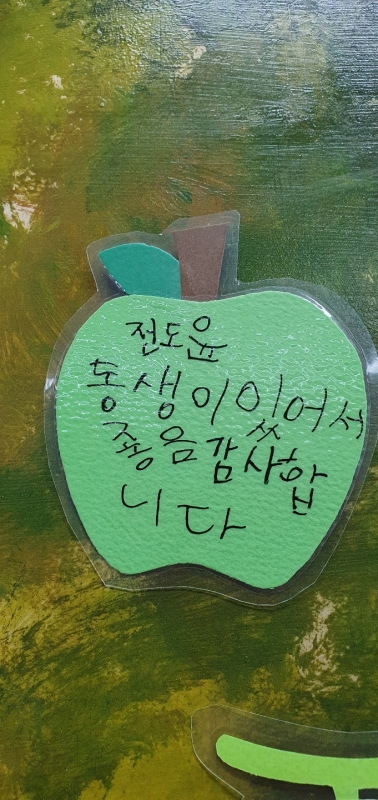 전도윤
동생이있어서
좋음감사합
니다